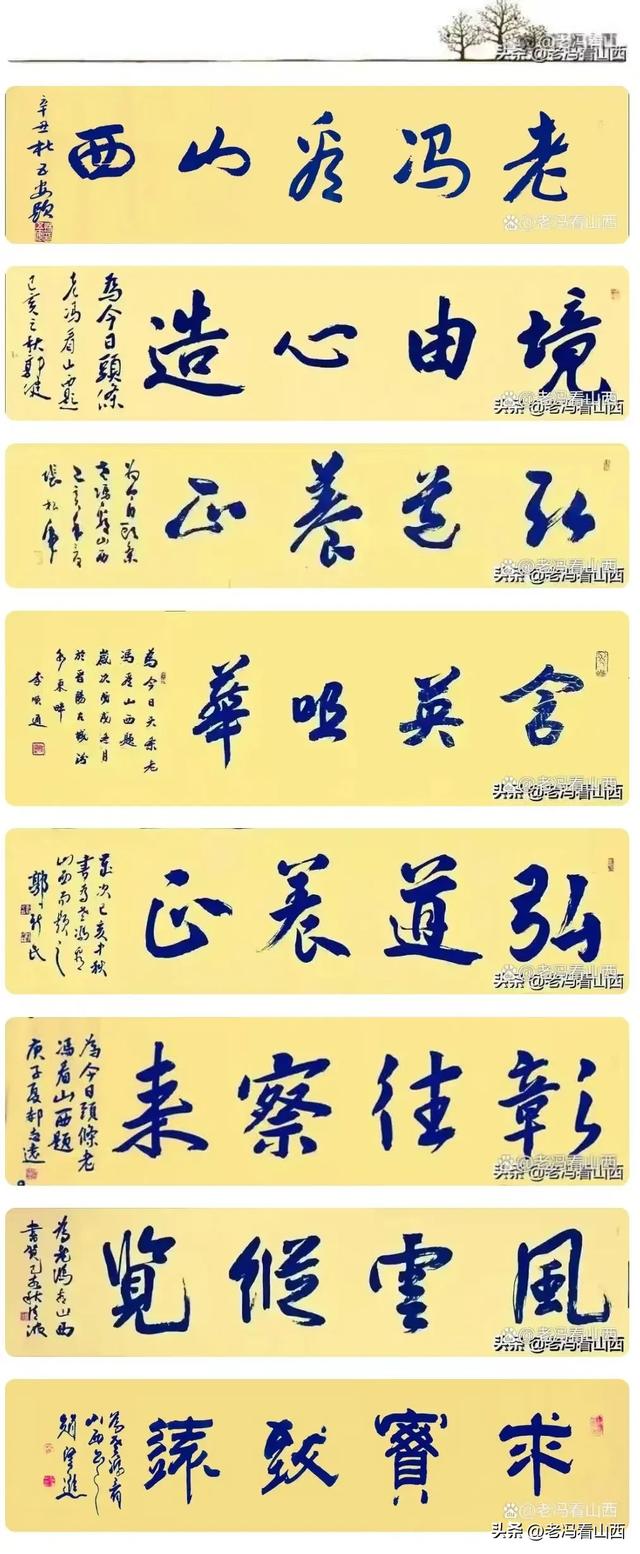 头条 @老冯看山西
老冯看山西
辛丑杜五安题
@老冯看山西
境由心造
為今日頭條
老冯看山西题
己亥之秋郭健
头条 @老冯看山西
弘道養正
为今日头条
老冯看山西
头条 @老冯看山西
含英咀華
為今日头条老
冯看山西题
歲次戊戌冬月
於晋陽古城汾
水東畔
头条 @老冯看山西
弘道養正
歲次己亥中秋
書為老冯看
山西而题之
郭新民
头条 @老冯看山西
彰往察来
為今日頭條老
冯看山西题
庚子夏郝
头条 @老冯看山西
風雲縱覧
為老冯看山西
書贺己亥秋清波
头条 @老冯看山西
求實致遠
為老冯看
山西书之
趙望進
@老冯看山西
头条 @老冯看山西